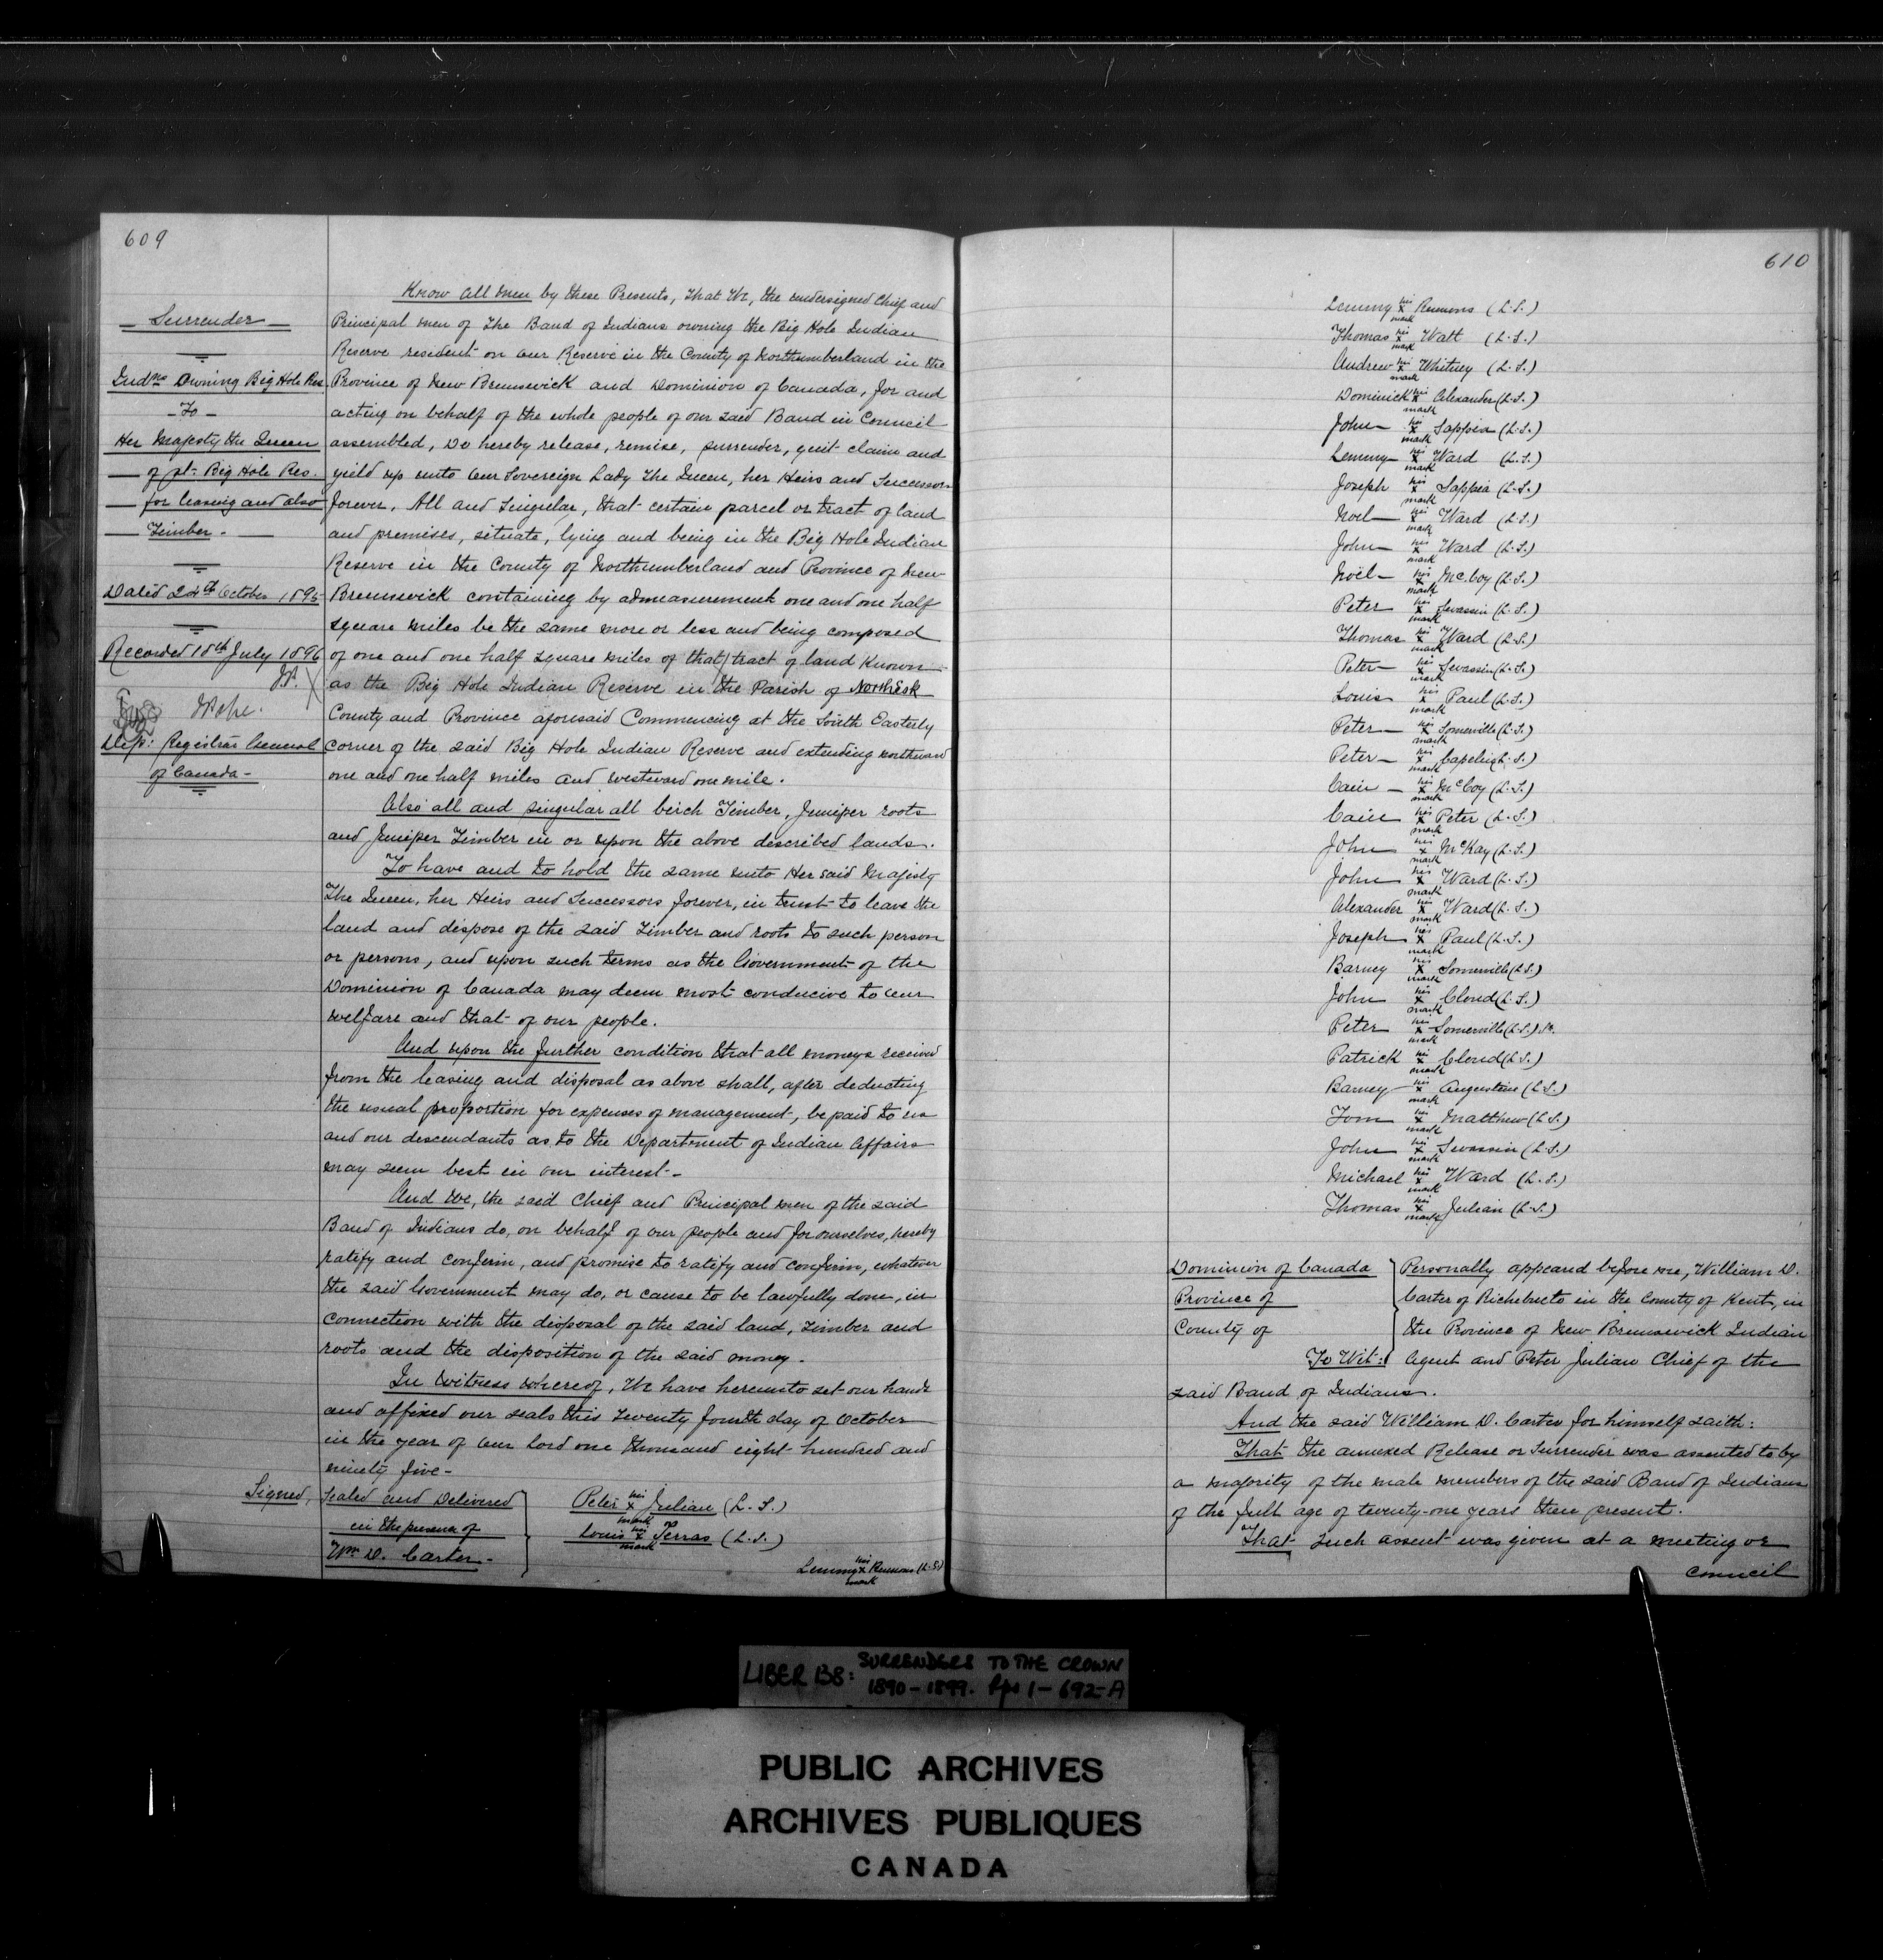 609
Surrender
Indns Owning Big Hole Res
-To-
Her Majesty the Queen
of pt. Big Hole Res.
for leasing and also
Timber.
Dated 24th October 1895
Recorded 18th July 1896
JP.
JPope.
Dep: Registrar General
of Canada -
Know all men by these Presents, That We, the undersigned Chief and
Principal men of The Band of Indians owning the Big Hole Indian
Reserve resident on our Reserve in the County of Northumberland in the
Province of New Brunswick and Dominion of Canada, for and
acting on behalf of the whole people of our said Band in Council
assembled, Do hereby release, remise, surrender, quit claim and
yield up unto Our Sovereign Lady The Queen, her Heirs and Successors
forever, All and Singular, that certain parcel or tract of land
and premises, situate, lying and being in the Big Hole Indian
Reserve in the County of Northumberland and Province of New
Brunswick containing by admeasurement one and one half
square miles be the same more or less and being composed
of one and one half square miles of that tract of land Known
as the Big Hole Indian Reserve in the Parish of NorthEsk
County and Province aforesaid Commencing at the South Easterly
corner of the said Big Hole Indian Reserve and extending northward
one and one half miles and westward one mile.
Also all and singular all birch Timber, Juniper roots
and Juniper Timber in or upon the above described lands.
To have and to hold the same unto Her said Majesty
The Queen, her Heirs and Successors forever, in trust to lease the
land and dispose of the said Timber and roots to such person
or persons, and upon such terms as the Government of the
Dominion of Canada may deem most conducive to our
welfare and that of our people.
And upon the further condition that all moneys received
from the leasing and disposal as above shall, after deducting
the usual proportion for expenses of management, be paid to us
and our descendants as to the Department of Indian Affairs
may seem best in our interest -
And We, the said Chief and Principal men of the said
Band of Indians do, on behalf of our people and for ourselves, hereby
ratify and confirm, and promise to ratify and confirm, whatever
the said Government may do, or cause to be lawfully done, in
connection with the disposal of the said land, timber and
roots and the disposition of the said money.
In witness whereof, We have hereunto set our hands
and affixed our seals this twenty fourth day of October
in the year of Our Lord one thousand eight hundred and
ninety five -
Signed, Sealed and Delivered
in the presence of
Wm D. Carter -
Peter his x mark Julian (L.S.)
Louis his x mark Perras (L.S.)
Lemmy his x mark Renous (L.S.)
610
Lemmy his x mark Renous (L.S.)
Thomas his x mark Watt (L.S.)
Andrew his x mark Whitney (L.S.)
Dominick his x mark Alexander (L.S.)
John his x mark Sappia (L.S.)
Lemmy his x mark Ward (L.S.)
Joseph his x mark Sappia (L.S.)
Noel his x mark Ward (L.S.)
John his x mark Ward (L.S.)
Noël his x mark McCoy (L.S.)
Peter his x mark Sevassin (L.S.)
Thomas his x mark Ward (L.S.)
Peter his x mark Sevassin (L.S.)
Louis his x mark Paul (L.S.)
Peter his x mark Somerville (L.S.)
Peter his x mark Capeleigh (L.S.)
Cain his x mark McCoy (L.S.)
Cain his x mark Peter (L.S.)
John his x mark McKay (L.S.)
John his x mark Ward (L.S.)
Alexander his x mark Ward (L.S.)
Joseph his x mark Paul (L.S.)
Barney his x mark Somerville (L.S.)
John his x mark Cloud (L.S.)
Peter his x mark Somerville (L.S.)
Patrick his x mark Cloud (L.S.)
Barney his x mark Augustine (L.S.)
Tom his x mark Matthew (L.S.)
John his x mark Sevassin (L.S.)
Michael his x mark Ward (L.S.)
Thomas his x mark Julian (L.S.)
Dominion of Canada
Province of
County of
To Wit:
Personally appeared before me, William D.
Carter of Richibucto in the County of Kent, in
the Province of New Brunswick Indian
Agent and Peter Julian Chief of the
said Band of Indians.
And the said William D. Carter for himself saith:
That the annexed Release or Surrender was assented to by
a majority of the male members of the said Band of Indians
of the full age of twenty-one years then present.
That such assent was given at a meeting or
council
LIBER B8: SURRENDERS TO THE CROWN
1890-1899. Pps 1-692-A
PUBLIC ARCHIVES
ARCHIVES PUBLIQUES
CANADA